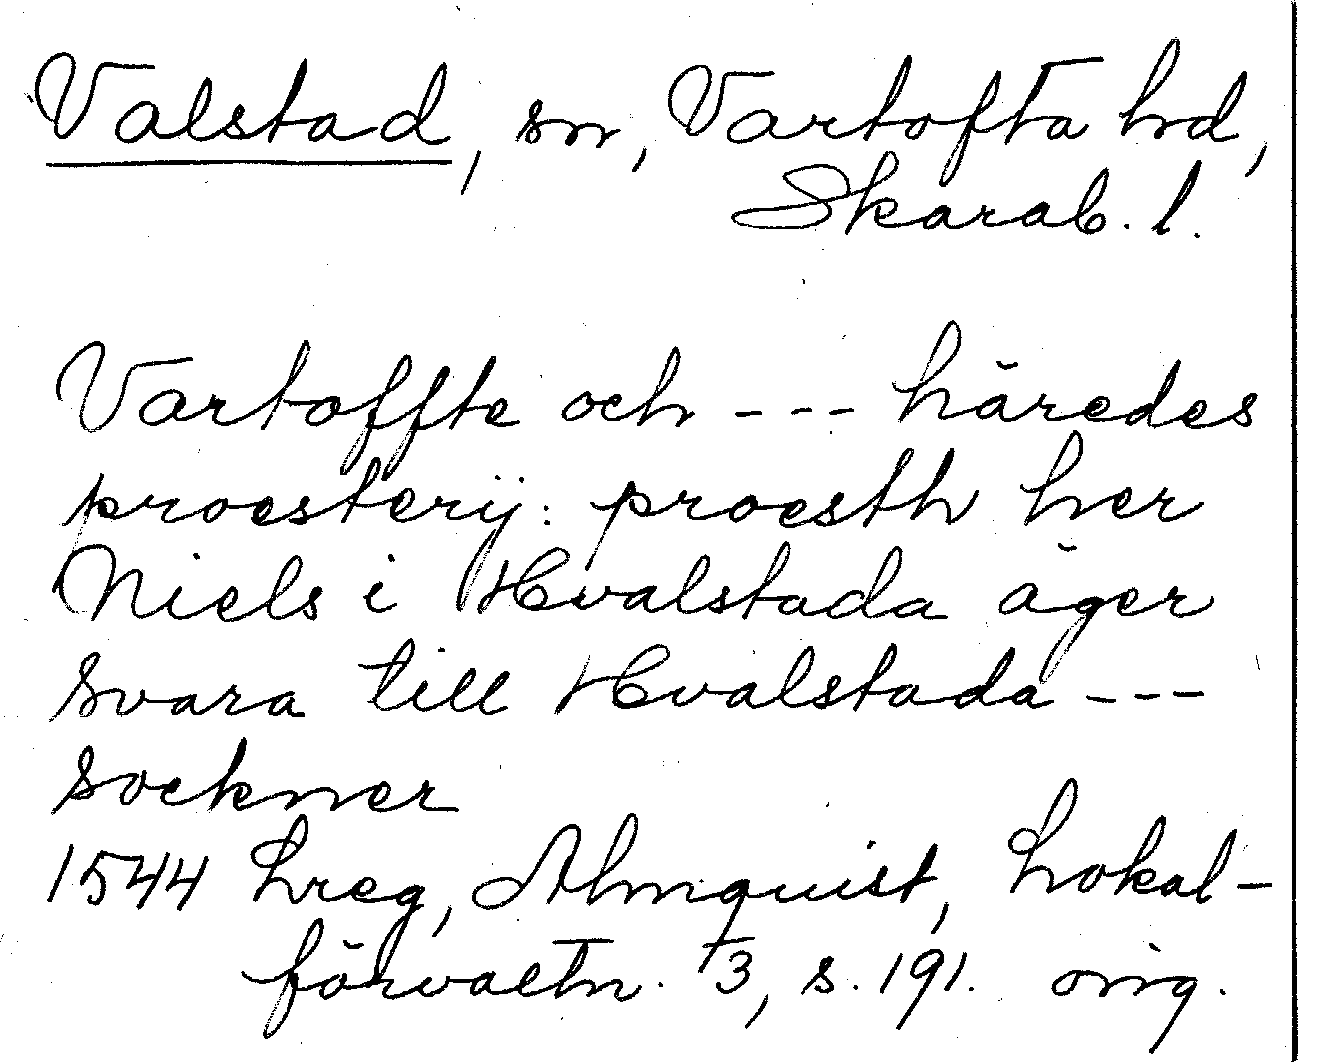 Valstad, sn, Vartofta hd,
Skarab. l.
Vartoffte och --- häredes
proesterij: proesth her
Niels i Hvalstada äger
svara till Hvalstada ---
sockner
1544 Lreg, Almquist, Lokal-
förvaltn. 3, s. 191. orig.